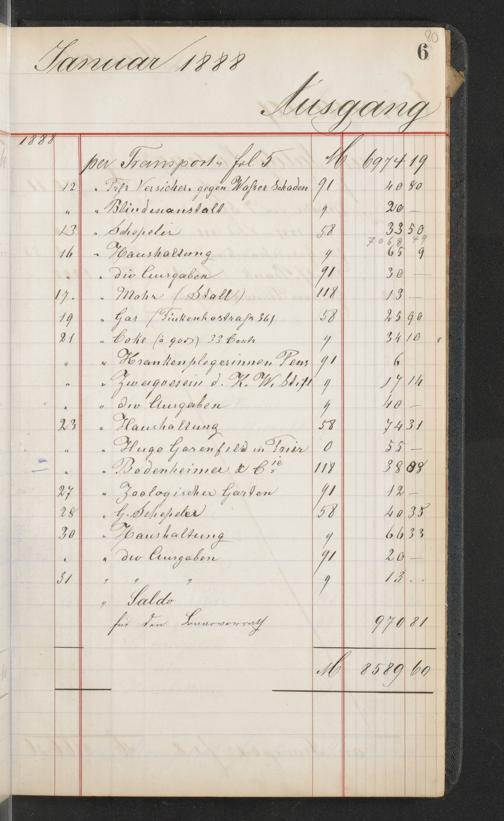 80
6
Januar 1888
Ausgang
1888
per Transport fol 5 M 6974 19
12 " Frkf. Versicher. gegen Waßer Schaden 91 40 80
" " Blindenanstalt " 20 —
13 " Schepeler 58 33 50
7068 49
16 " Haushaltung " 65 9
" div Ausgaben 91 30 —
17. " Mohr (Stall) 118 13 —
19 " Gas 58 25 90
21 " Coke 33 Cents " 34 10
" " Krankenpflegerinnen Pens 91 6
" " Zweigverein d. K. W. Stift " 17 14
" " div Ausgaben " 40 —
23 " Haushaltung 58 74 31
" " Hugo Garenfeld in Trier 0 55 —
" " Bodenheimer & Cie 118 38 88
27 " Zoologischer Garten 91 12 —
28 " G. Schepeler 58 40 35
30 " Haushaltung " 66 33
" " div Ausgaben 91 20 —
31 " " " " 13 ..
" Saldo
für den 970 81
M 8589 60